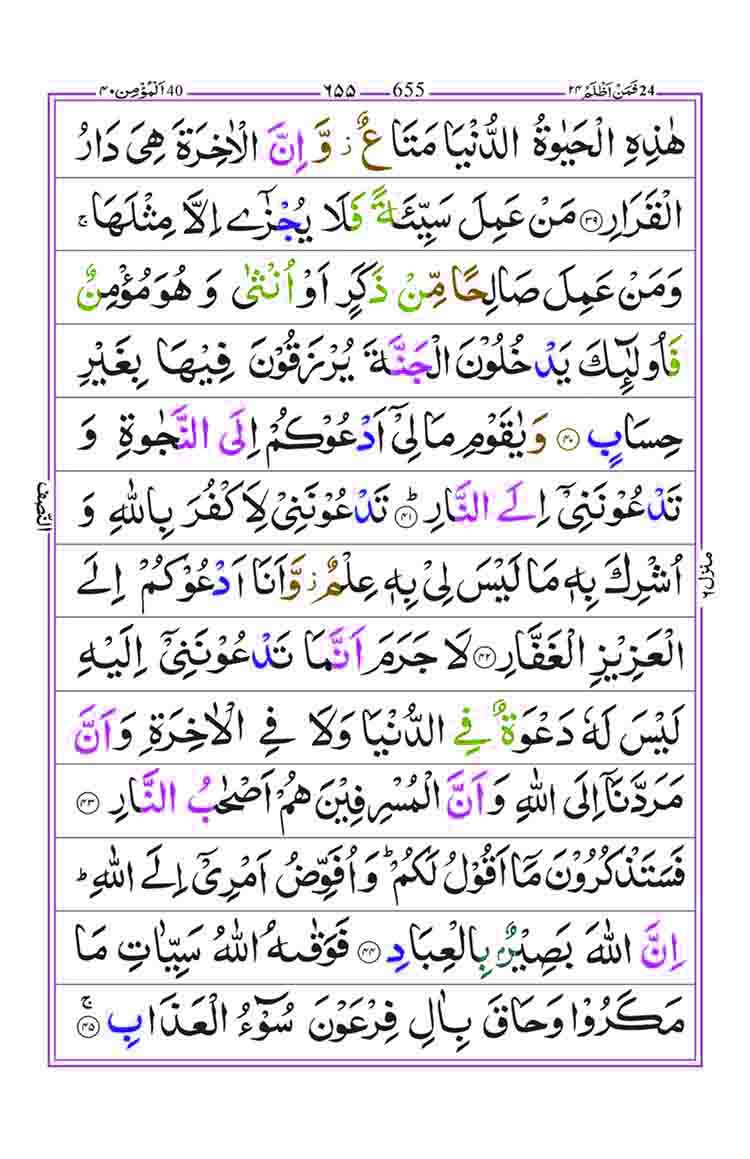 اَلْمُؤْمِن ۴۰ 40 ۶۵۵ 655 فَمَنْ اَظْلَمُ ۲۴ 24
هٰذِهِ الْحَيٰوةُ الدُّنْيَا مَتَاعٌ ز وَّ اِنَّ الْاٰخِرَةَ هِىَ دَارُ
الْقَرَارِ ﴿۳۹﴾ مَنْ عَمِلَ سَيِّئَةً فَلَا يُجْزٰٓى اِلَّا مِثْلَهَا ج
وَمَنْ عَمِلَ صَالِحًا مِّنْ ذَكَرٍ اَوْ اُنْثٰى وَ هُوَ مُؤْمِنٌ
فَاُولٰٓئِكَ يَدْخُلُوْنَ الْجَنَّةَ يُرْزَقُوْنَ فِيْهَا بِغَيْرِ
حِسَابٍ ﴿۴۰﴾ وَيٰقَوْمِ مَا لِىْٓ اَدْعُوْكُمْ اِلَى النَّجٰوةِ وَ
تَدْعُوْنَنِىْٓ اِلَى النَّارِ ط ﴿۴۱﴾ تَدْعُوْنَنِىْ لِاَكْفُرَ بِاللّٰهِ وَ
اُشْرِكَ بِهٖ مَا لَيْسَ لِىْ بِهٖ عِلْمٌ ز وَّاَنَا اَدْعُوْكُمْ اِلَى
الْعَزِيْزِ الْغَفَّارِ ﴿۴۲﴾ لَا جَرَمَ اَنَّمَا تَدْعُوْنَنِىْٓ اِلَيْهِ
لَيْسَ لَهٗ دَعْوَةٌ فِى الدُّنْيَا وَلَا فِى الْاٰخِرَةِ وَاَنَّ
مَرَدَّنَاۤ اِلَى اللّٰهِ وَاَنَّ الْمُسْرِفِيْنَ هُمْ اَصْحٰبُ النَّارِ ﴿۴۳﴾
فَسَتَذْكُرُوْنَ مَاۤ اَقُوْلُ لَكُمْ ط وَاُفَوِّضُ اَمْرِىْٓ اِلَى اللّٰهِ ط
اِنَّ اللّٰهَ بَصِيْرٌۢ بِالْعِبَادِ ﴿۴۴﴾ فَوَقٰىهُ اللّٰهُ سَيِّاٰتِ مَا
مَكَرُوْا وَحَاقَ بِاٰلِ فِرْعَوْنَ سُوْٓءُ الْعَذَابِ ج ﴿۴۵﴾
النّصف
منزل ۶